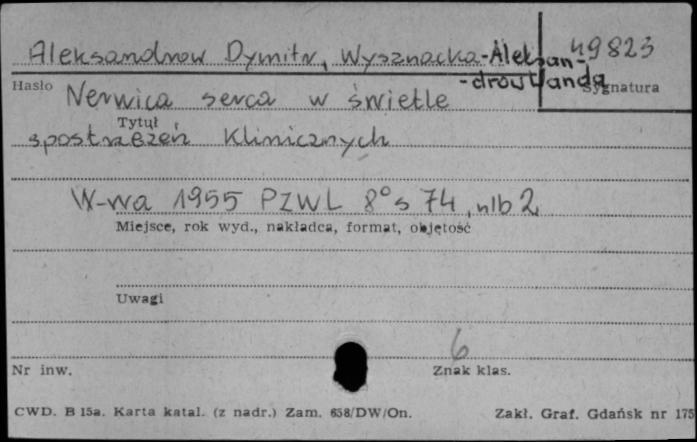 Aleksandrow Dymitr, Wysznacka-Aleksan-
-drow Wanda
49823
Hasło
Sygnatura
Nerwica serca w świetle
Tytuł
spostrzeżeń klinicznych
W-wa 1955 PZWL 8° s 74, nlb 2
Miejsce, rok wyd., nakładca, format, objętość
Uwagi
6
Nr inw.
Znak klas.
CWD. B 15a. Karta katal. (z nadr.) Zam. 658/DW/On.
Zakł. Graf. Gdańsk nr 175